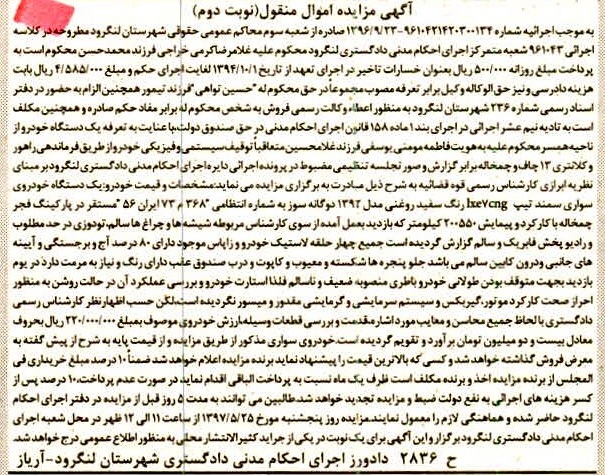 آگهی مزایده اموال منقول(نوبت دوم)
به موجب اجرائیه شماره ۹۶۱۰۴۲۱۴۲۰۳۰۰۱۳۴-۱۳۹۶/۹/۲۳ صادره از شعبه سوم محاکم عمومی حقوقی شهرستان لنگرود مطروحه در کلاسه
اجرائی ۹۶۱۰۴۳ شعبه متمرکز اجرای احکام مدنی دادگستری لنگرود محکوم علیه غلامرضا کرمی خراجی فرزند محمدحسن محکوم است به
پرداخت مبلغ روزانه ۵۰۰/۰۰۰ ریال بعنوان خسارات تاخیر در اجرای تعهد از تاریخ ۱۳۹۴/۱۰/۱ لغایت اجرای حکم و مبلغ ۴/۵۸۵/۰۰۰ ریال بابت
هزینه دادرسی و نیز حق الوکاله وکیل برابر تعرفه مصوب مجموعا در حق محکوم له "حسین تواهی "فرزند تیمور همچنین الزام به حضور در دفتر
اسناد رسمی شماره ۲۳۶ شهرستان لنگرود به منظور اعطاء وکالت رسمی فروش به شخص محکوم له برابر مفاد حکم صادره و همچنین مکلف
است به تادیه نیم عشر اجرائی در اجرای بند ۱ ماده ۱۵۸ قانون اجرای احکام مدنی در حق صندوق دولت با عنایت به تعرفه یک دستگاه خودرو از
ناحیه همسر محکوم علیه به هویت فاطمه مومنی یوسفی فرزند غلامحسین متعاقبا توقیف سیستمی و فیزیکی خودرو از طریق فرماندهی راهور
و کلانتری ۱۳ چاف و چمخاله برابر گزارش و صور تجلسه تنظیمی مضبوط در پرونده اجرائی دایره اجرای احکام مدنی دادگستری لنگرود بر مبنای
نظریه ابرازی کارشناس رسمی قوه قضائیه به شرح ذیل مبادرت به برگزاری مزایده می نماید:مشخصات و قیمت خودرو:یک دستگاه خودروی
سواری سمند تیپ lxe7cng رنگ سفید روغنی مدل ۱۳۹۲ دوگانه سوز به شماره انتظامی "۳۶۸ م ۷۳ ایران ۵۶ "مستقر در پارکینگ فجر
چمخاله با کارکرد و پیمایش ۲۰۰۵۵۰ کیلومتر که بازدید بعمل آمده از سوی کارشناس مربوطه شیشه ها و چراغ ها سالم، تودوزی در حد مطلوب
و رادیو پخش فابریک و سالم گزارش گردیده است جمیع چهار حلقه لاستیک خودرو و زاپاس موجود دارای ۸۰ درصد آج و برجستگی و آیینه
های جانبی ودرون کابین سالم می باشد جلو پنجره ها شکسته و معیوب و کاپوت و درب صندوق عقب دارای رنگ و نیاز به مرمت دارد در یوم
بازدید بجهت متوقف بودن طولانی خودرو باطری منصوبه ضعیف و ناسالم فلذا استارت خودرو و بررسی عملکرد آن در حالت روشن به منظور
احراز صحت کارکرد موتور، گیربکس و سیستم سرمایشی و گرمایشی مقدور و میسور نگردیده است،لکن حسب اظهارنظر کارشناس رسمی
دادگستری با لحاظ جمیع محاسن و معایب مورد اشاره،قدمت و بررسی قطعات وسیله،ارزش خودروی موصوف بمبلغ ۲۲۰/۰۰۰/۰۰۰ ریال بحروف
معادل بیست و دو میلیون تومان برآورد و تقویم گردیده است.خودروی سواری مذکور از طریق مزایده و از قیمت پایه به شرح از پیش گفته به
معرض فروش گذاشته خواهد شد و کسی که بالاترین قیمت را پیشنهاد نماید برنده مزایده اعلام خواهد شد ضمناً ۱۰ درصد مبلغ خریداری فی
المجلس از برنده مزایده اخذ و برنده مکلف است ظرف یک ماه نسبت به پرداخت الباقی اقدام نماید، در صورت عدم پرداخت، ۱۰ درصد پس از
کسر هزینه های اجرائی به نفع دولت ضبط و مزایده تجدید خواهد شد.طالبین می توانند به مدت ۵ روز قبل از مزایده در دفتر اجرای احکام
لنگرود حاضر شده و هماهنگی لازم را معمول نمایند.مزایده روز پنجشنبه مورخ ۱۳۹۷/۵/۲۵ از ساعت ۱۱ الی ۱۲ ظهر در محل شعبه اجرای
احکام مدنی دادگستری لنگرود برگزار و این آگهی برای یک نوبت در یکی از جراید کثیرالانتشار محلی به منظور اطلاع عمومی درج خواهد شد.
ح ۲۸۳۶ دادورز اجرای احکام مدنی دادگستری شهرستان لنگرود-آریاز